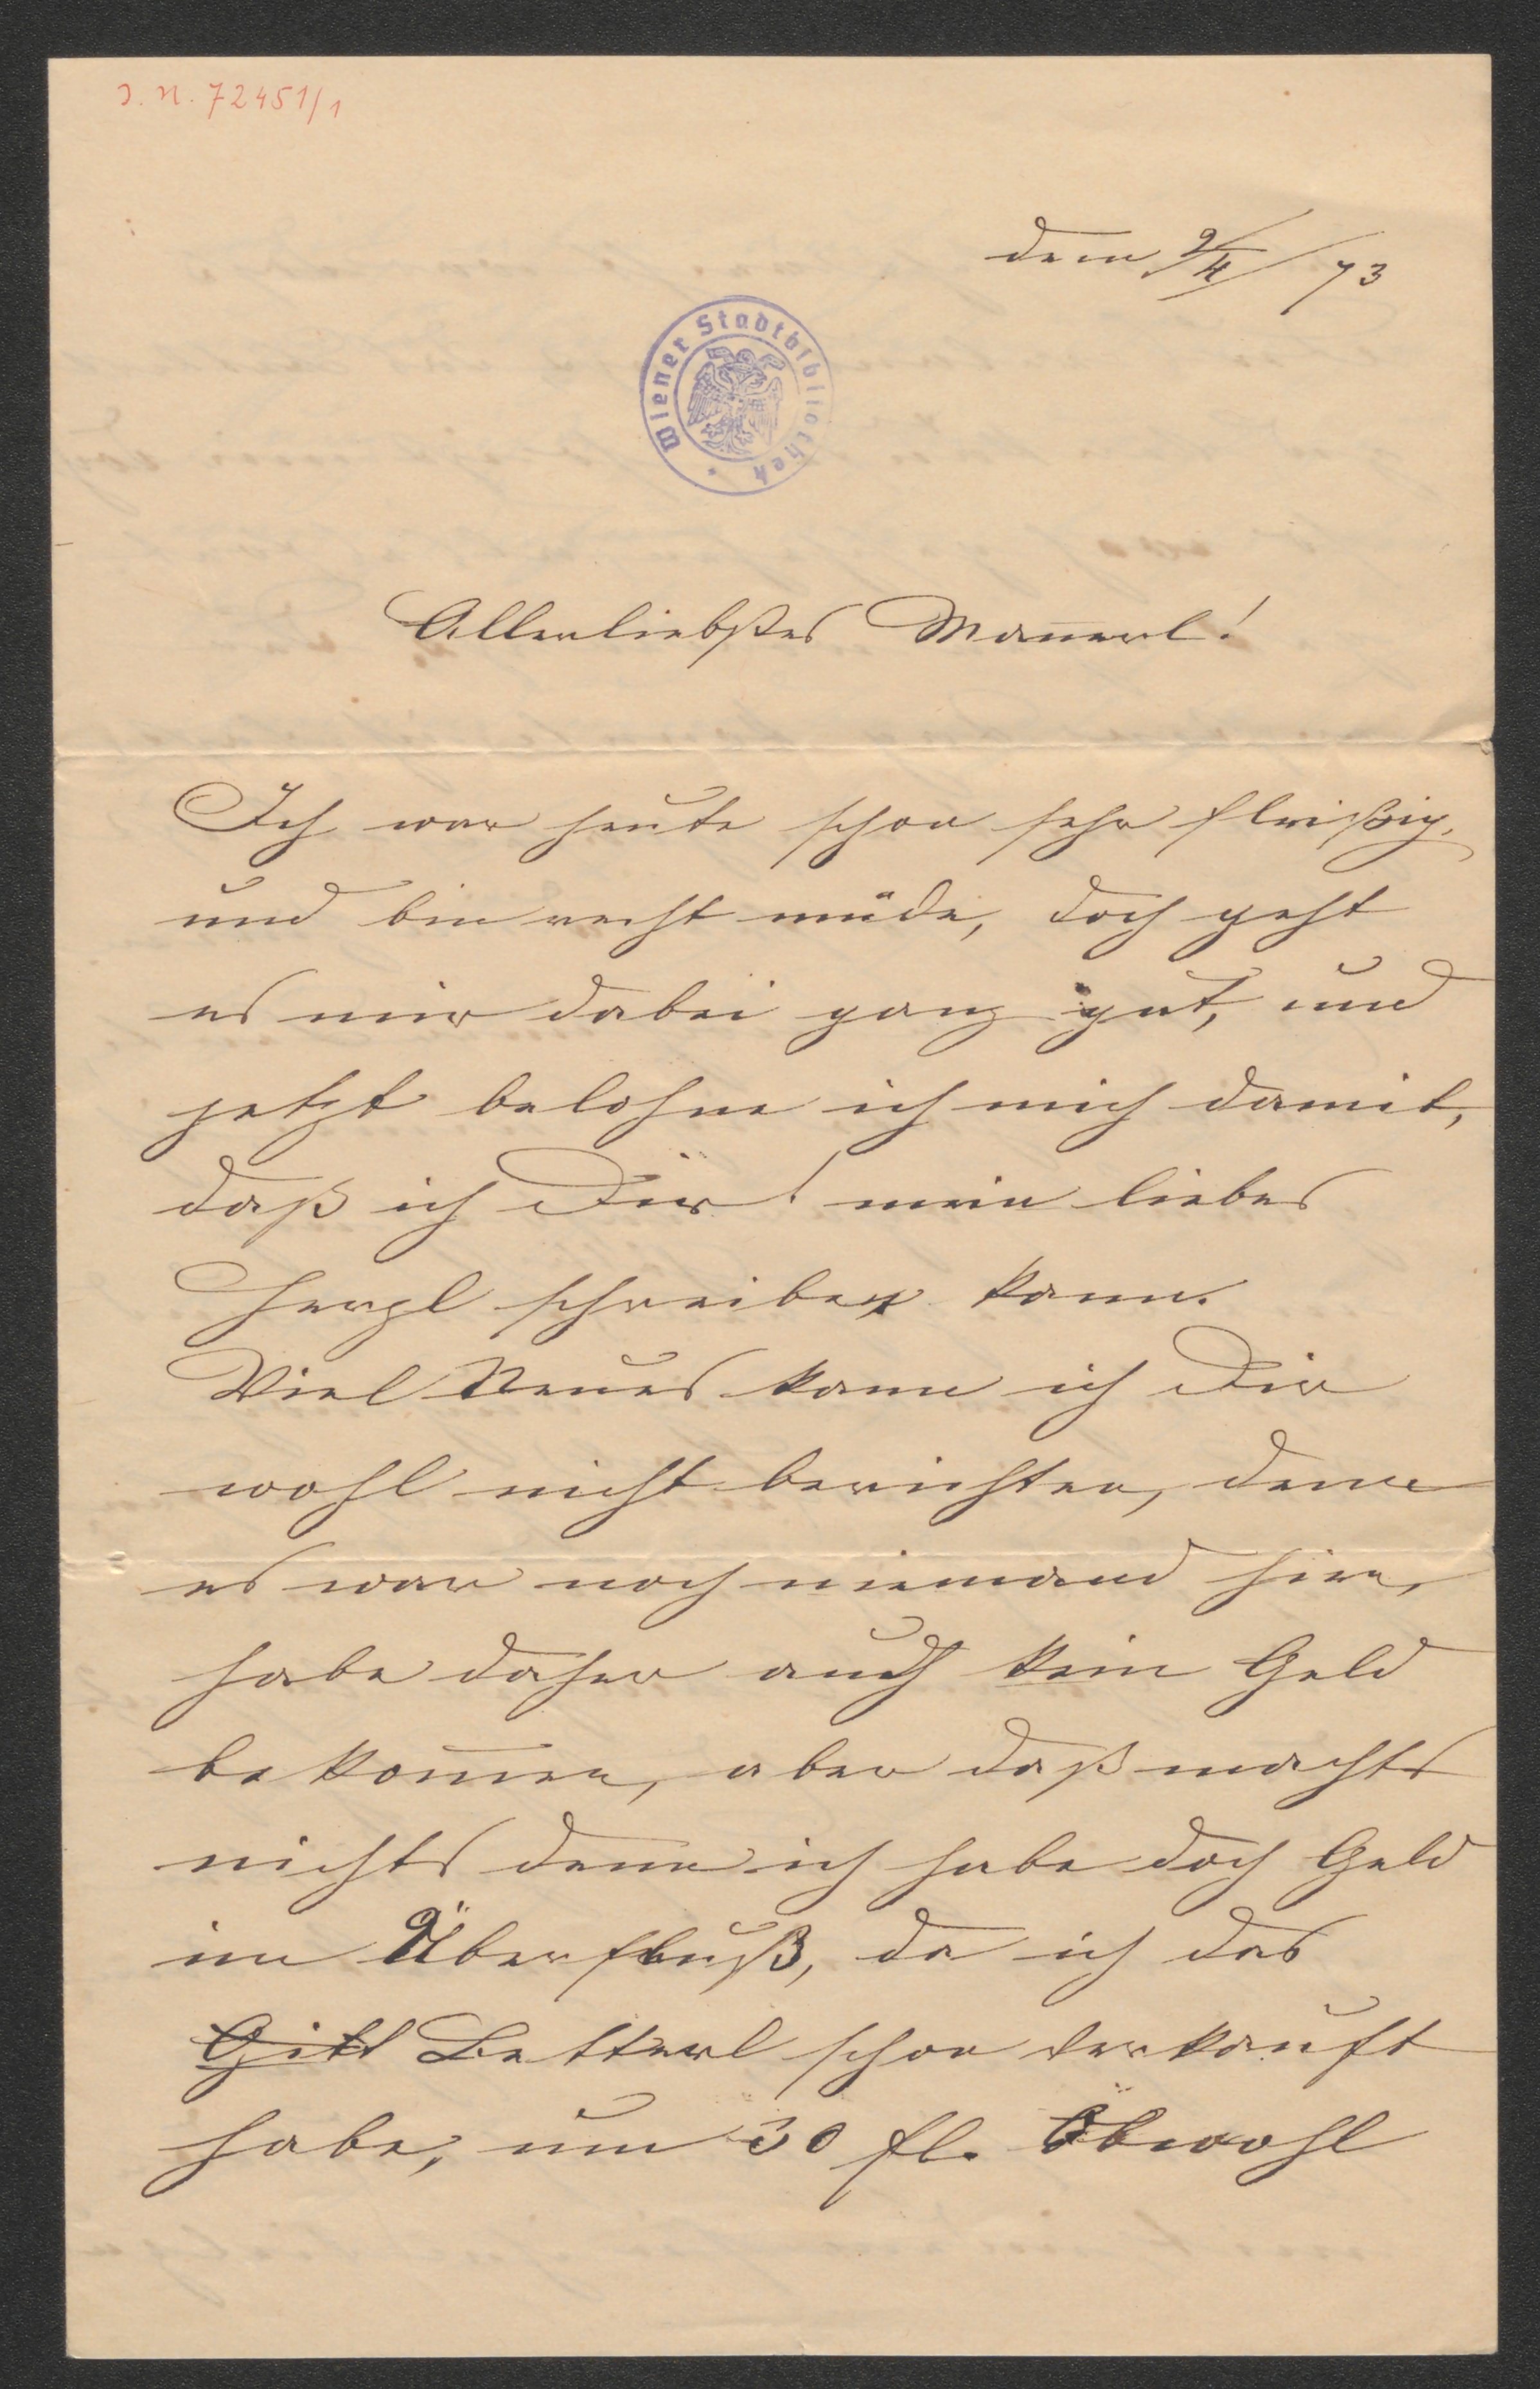 J. N. 72451/1
den 9/4/73
Wiener Stadtbibliothek
Allerliebstes Mannerl!
Ich war heute schon sehr fleißig,
und bin recht müde, doch geht
es mir dabei ganz gut, und
jetzt belohne ich mich damit,
daß ich Dir! mein liebes
Herzl schreiben kann.
Viel Neues kann ich Dir
wohl nicht berichten, denn
es war noch niemand hier,
habe daher auch kein Geld
bekommen, aber daß machts
nichts denn ich habe doch Geld
im Überfluß, da ich das
Gitt Betterl schon verkauft
habe, um 30 fl. Obwohl